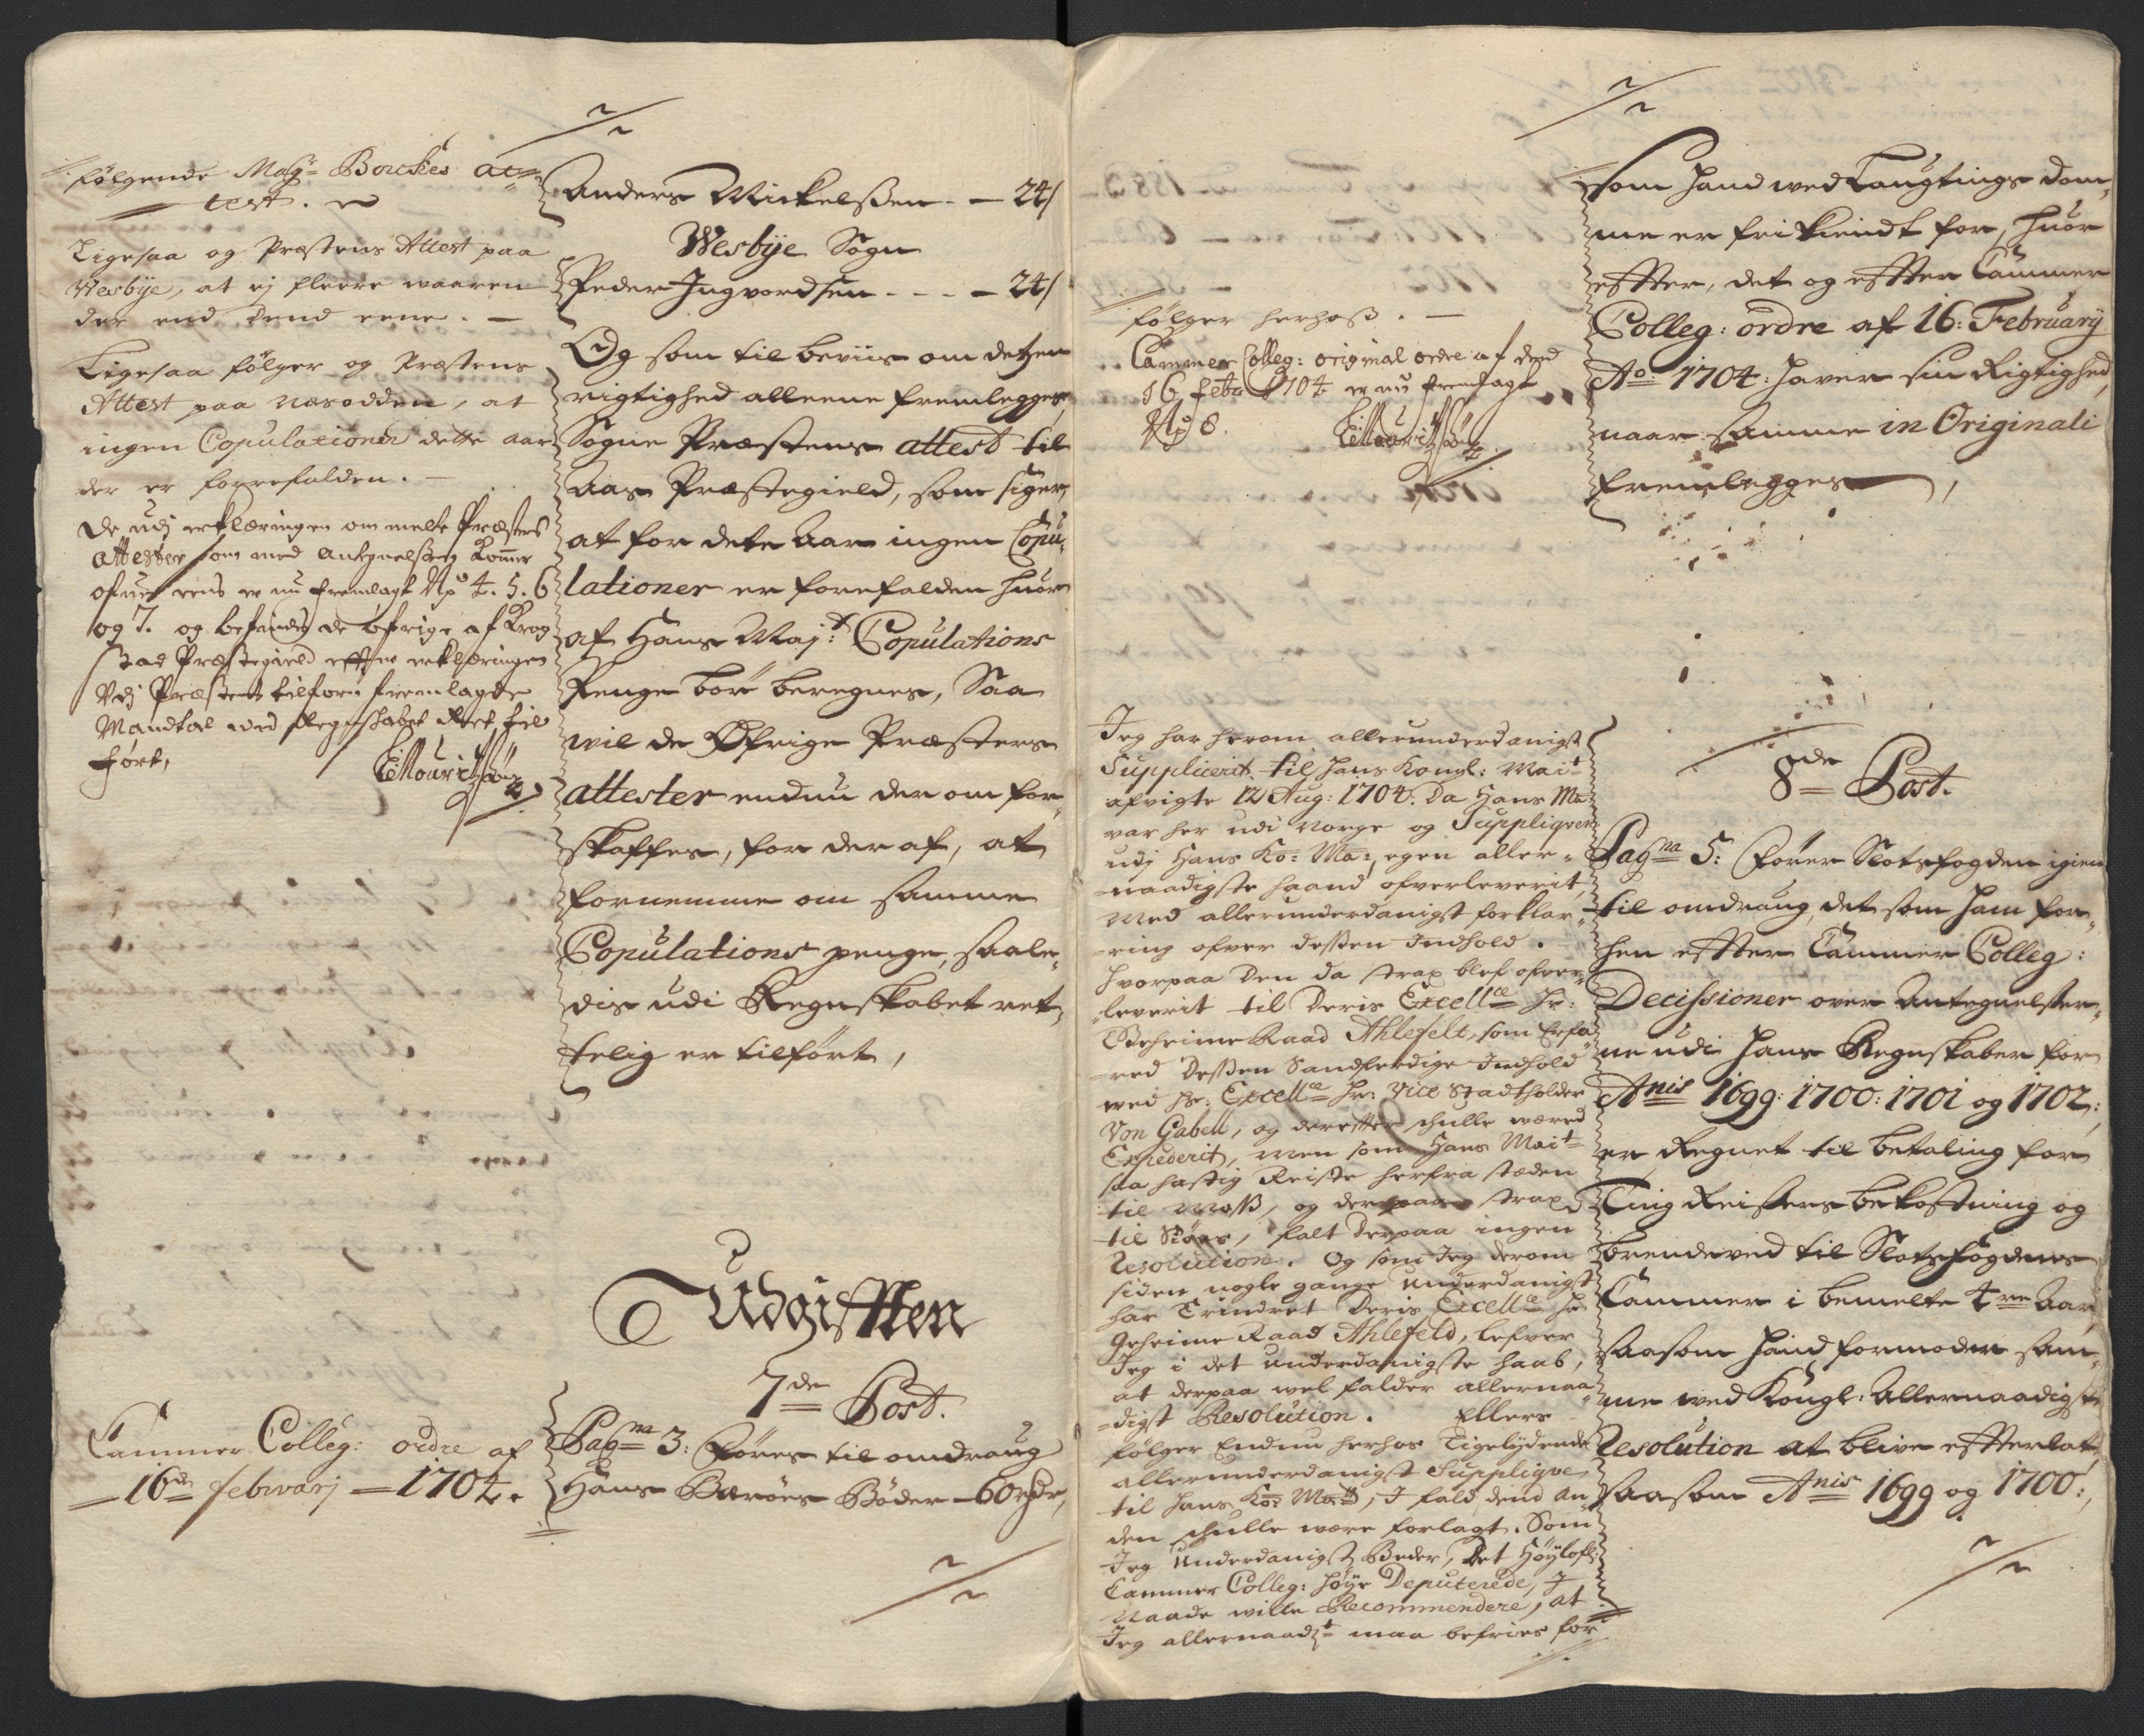 følgende Mag: Borchses at=
test.
Ligesaa og Præstens Attest paa
Wesbÿe, at ej fleere waaren
der end dend eene.
Ligesaa følger og Præstens
Attest paa Næsodden, at
ingen Copulationer dette aar
der er forrefalden.
De udj erklæringen om melte Præsters
attester som med antegnelsen Kommer
ofver eens er nu fremlagt No 4. 5. 6
og 7. og befindes de øfrige af Krog
stad Præstegield efter erklæringen
Udj Præstens tilforn fremlagde
Mandtal ved Regnskabet Ret til
ført,
Cammer Colleg: ordre af
16de febrvarj 1704.
Anders Mickelsßen - - 24 /
Wesbÿe Sogn
Peder Ingvordsen - - - 24 /
Og som til beviis om detzen
rigtighed alleene fremlegges
Sogne Præstens attest til
Aas Præstegield, som siger
at for dete Aar ingen Copu,
lationer er forefalden huor
af Hans Maj:t Copulations
Penge bør beregnes, Saa
wil de Øfrige Præsters
attester endnu der om for,
skaffes, for der af, at
fornemme om samme
Copulations penge, saale,
dis udi Regnskabet ret,
telig er tilført,
Udgifften
7de Post.
Pagna 3: Føres til omdraug
Hans Bærøes Bøder - 60 rdr,
følger herhoß.
Cammer Colleg: original ordre af dend
16 Febr 1704 er nu fremlagt
No 8.
Jeg har herom allerunderdanigst
Supplicerit til Hans Kongl: Mait
afvigte 12 Aug: 1704. Da Hans Ma:
var her udi Norge og Suppliqven
udj Hans Ko: Ma: egen aller=
naadigste haand ofverleverit,
med allerunderdanigst forklar=
ring ofver deßen Indhold.
Hvorpaa den da strax blef ofver=
leverit til Deris Excellce Hr:
Geheime Raad Ahlefelt, som Erfa=
red Deßen Sandferdige Indhold
ved Hr: Excellce Hr: Vice Stadtholder
Von Gabell, og derefter schulle været
Expederit, men som Hans Mait
saa hastig Reiste herfra stæden
til Moß, og derpaa strax
til Søes, falt derpaa ingen
Resolution. Og som Jeg derom
siden nogle gange underdanigst
har Erindret Deris Excellce Hr
Geheime Raad Ahlefeld, lefver
Jeg i det underdanigste haab,
at derpaa wel falder allernaa=
digst Resolution. Ellers
følger Endnu herhos Ligelydende
allerunderdanigst Suppliqve
til Hans Ko: Ma:tt, J fald dend an
den schulle være forlagt. Som
Jeg underdanigst Beder, Det Høylofl:
Cammer Colleg: høye Deputerede, J
Naade wille Recommendere, at
Jeg allernaadgt maa befries for
Som hand wed Laugtings dom,
me er frikiendt for, huor
effter, det og effter Cammer
Colleg: ordre af 16: Februarÿ
Ao 1704: haver sin Rigtighed,
naar samme in Originali
fremlegges,
8de Post.
Pagna 5: Fører Slotsfogden igien
til omdraug, det som ham for,
hen effter Cammer Colleg:
Decissioner over Antegnelser,
ne udi hans Regnskaber for
Anis 1699: 1700: 1701 og 1702,:
er Regnet til betaling for
Ting Reisers bekostning og
brendeved til Slotsfogdens
Cammer i bemelte 4re Aar,
saasom hand formoder sam,
me wed Kongl: Allernaadigste
Resolution at blive effterlat,
saasom Anis 1699 og 1700:,